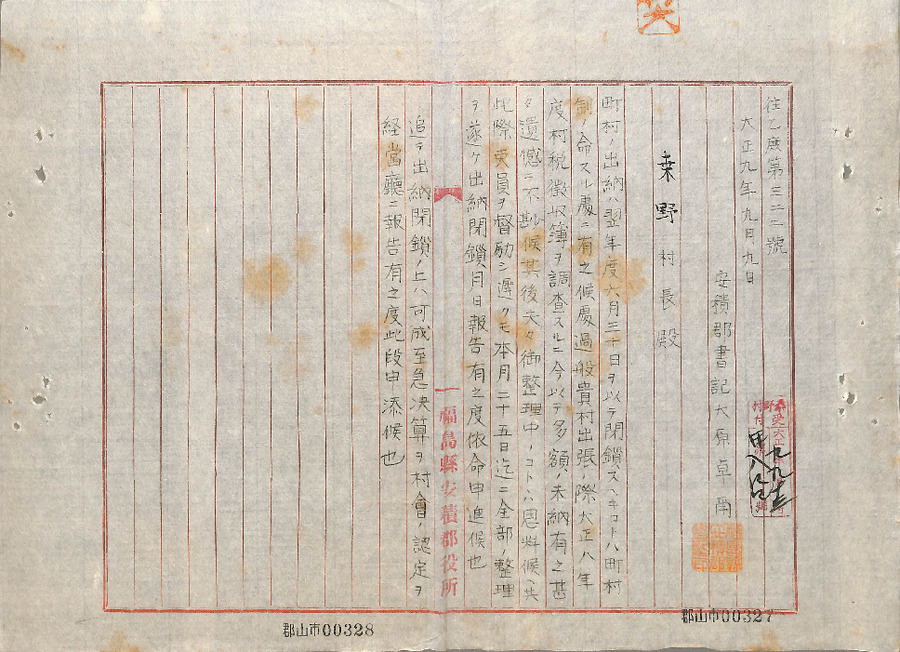 往乙庶第三二二號
大正九年九月九日
安積郡書記大原卓爾
桒野村長殿
町村ノ出納ハ翌年度六月三十日ヲ以テ閉鎖スヘキコトハ町村
制ノ命スル處ニ有之候處過般貴村出張ノ際大正八年
度村税徴収簿ヲ調査スルニ今以テ多額ノ未納有之甚
タ遺憾ニ不勘候其後夫々御整理中ノコトハ思料候ヘ共
此際吏員ヲ督励シ遅クモ本月二十五日迄ニ全部ノ整理
ヲ遂ケ出納閉鎖ノ月日報告有之度依命申進候也
追テ出納閉鎖ノ上ハ可成至急決算ヲ村會ノ認定ヲ
経當廳ニ報告有之度此段申添候也
福島縣安積郡役所
郡山市00328
郡山市00327